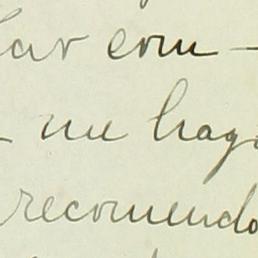 lar com-
me haga
recomendo